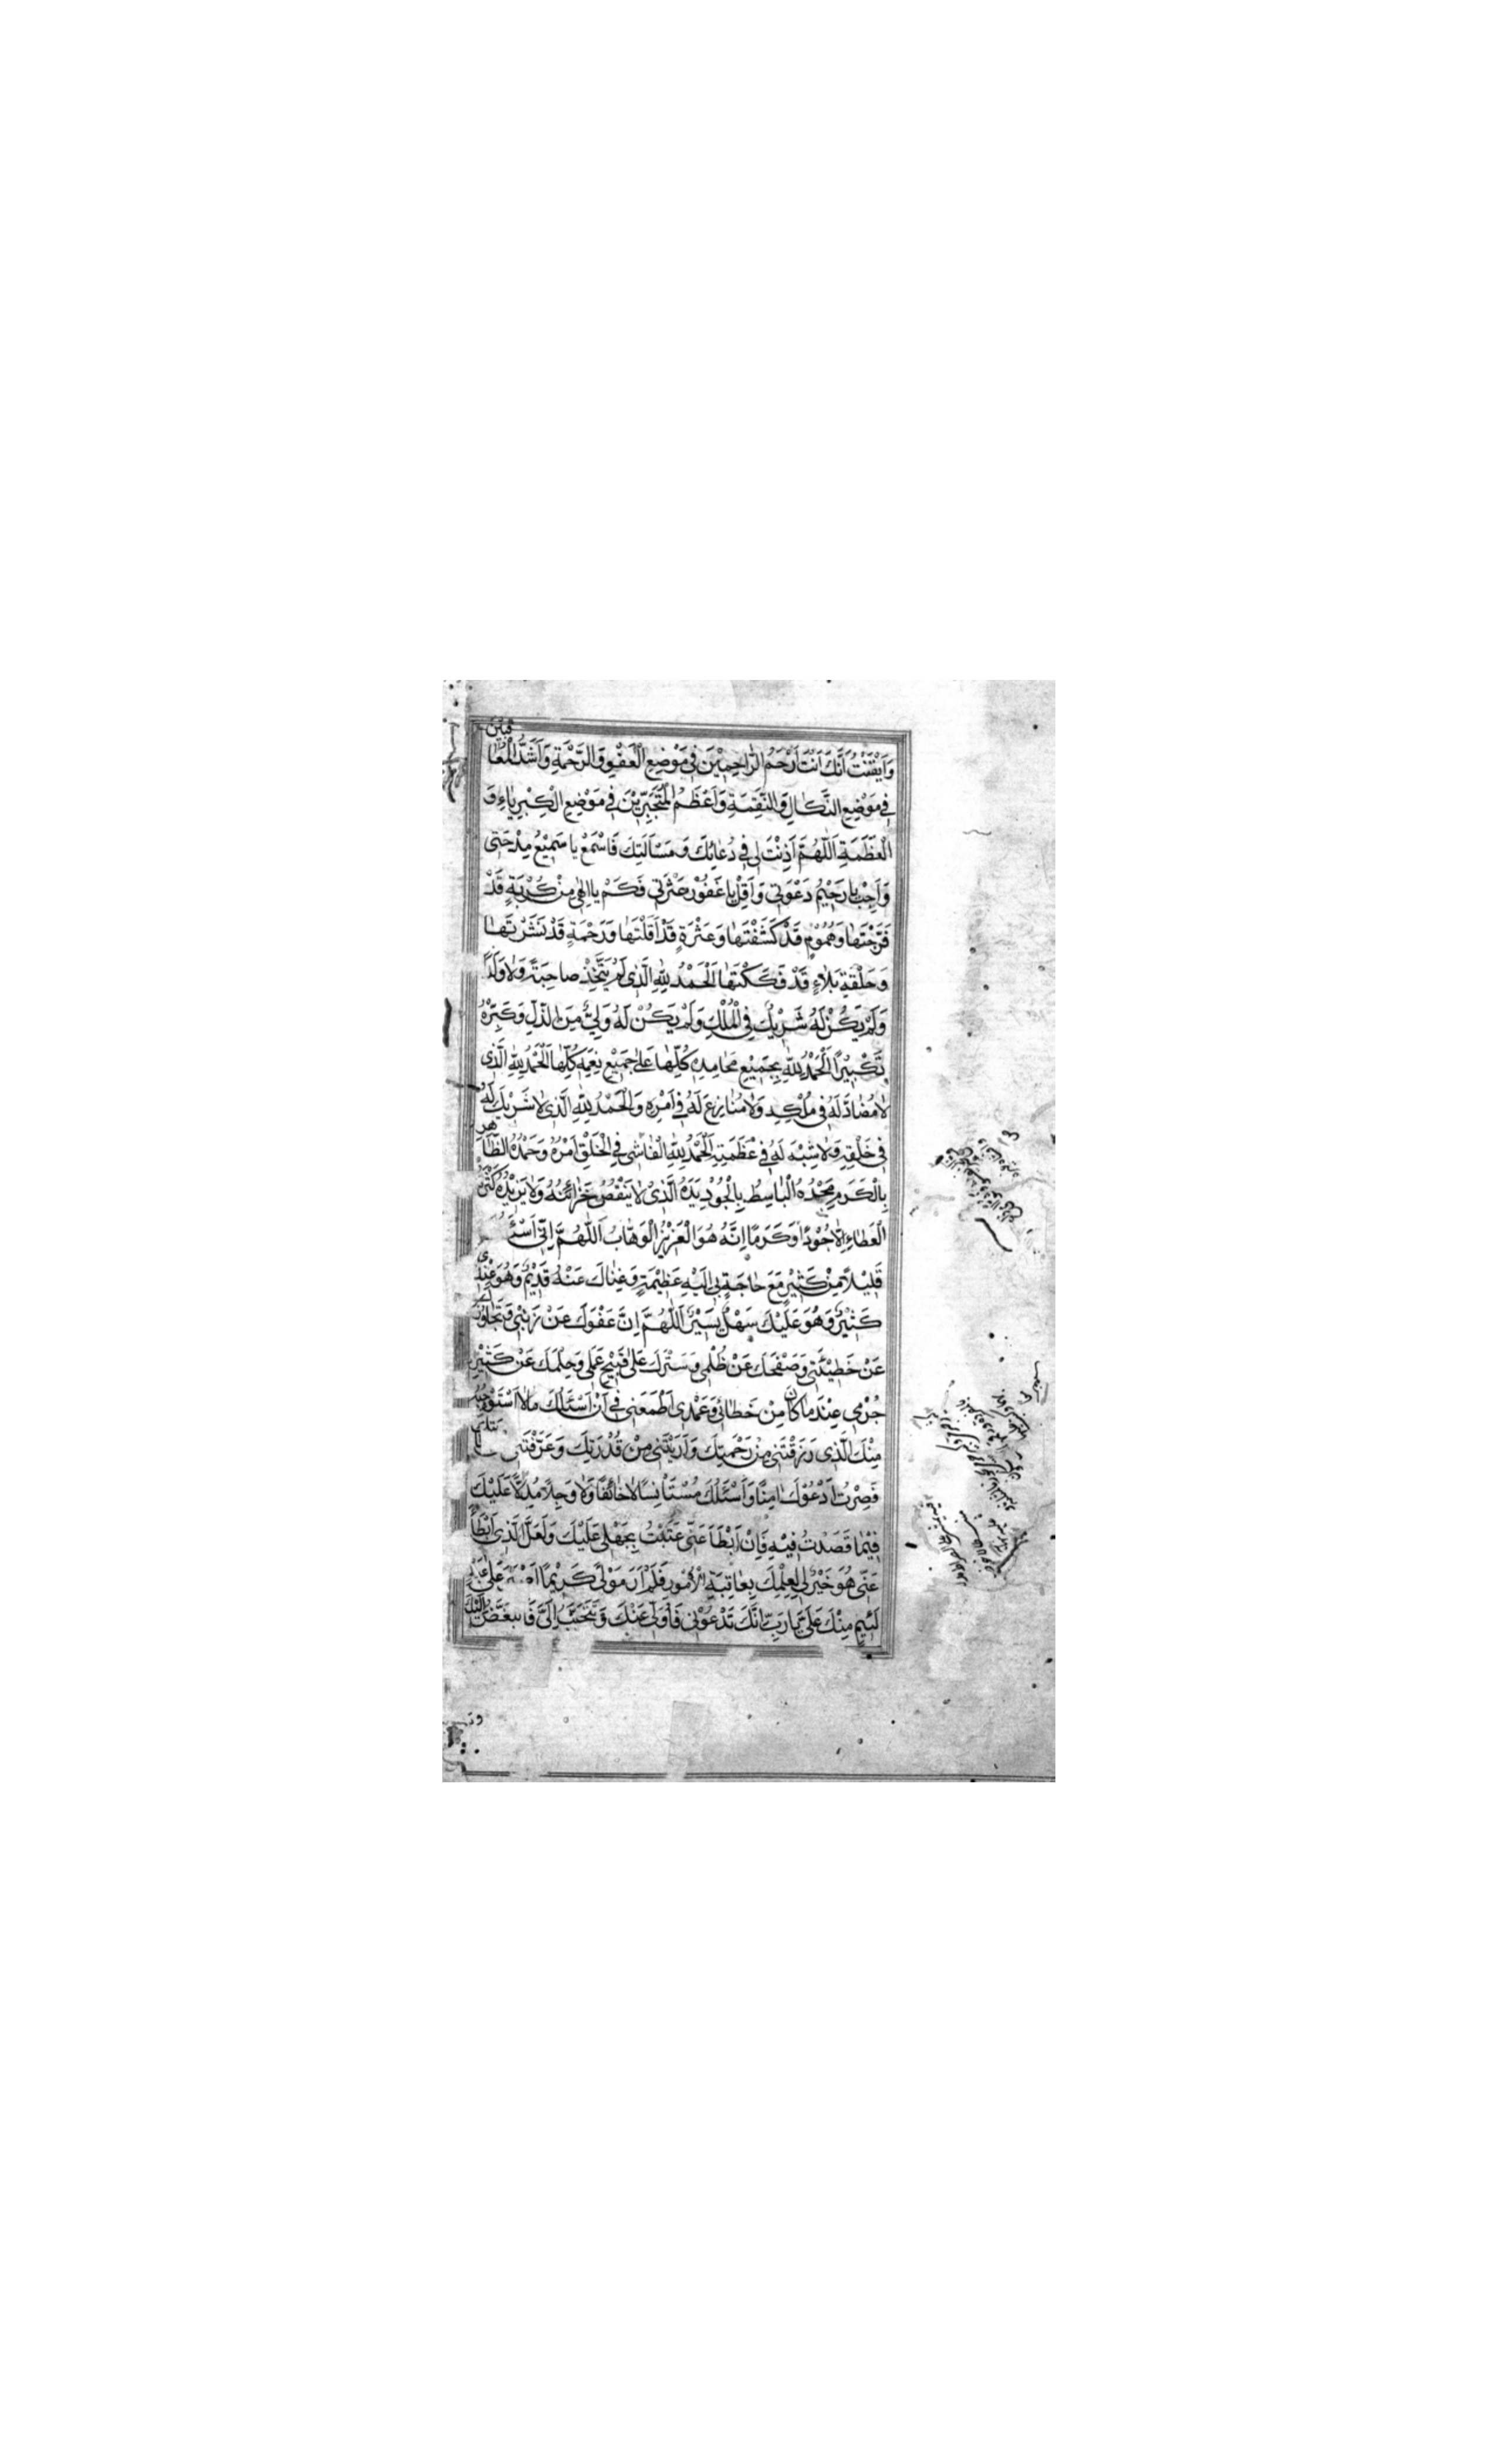 وَاَيْقَنْتُ اَنَّكَ اَنْتَ اَرْحَمُ الرّٰاحِمِيْنَ فِى مَوْضِعِ الْعَفْوِ وَالرَّحْمَةِ وَاَشَدُّ الْمُعٰاقِبِيْنَ
فِى مَوْضِعِ النَّكٰالِ وَالنَّقِمَةِ وَاَعْظَمُ الْمُتَجَبِّرِيْنَ فِى مَوْضِعِ الْكِبْرِيٰاءِ وَ
الْعَظَمَةِ اَللّٰهُمَّ اَذِنْتَ لِى فِى دُعٰائِكَ وَمَسْاَلَتِكَ فَاسْمَعْ يٰا سَمِيْعُ مِدْحَتِى
وَاَجِبْ يٰا رَحِيْمُ دَعْوَتِى وَاَقِلْ يٰا غَفُوْرُ عَثْرَتِى فَكَمْ يٰا اِلٰهِى مِنْ كُرْبَةٍ قَدْ
فَرَّجْتَهٰا وَهُمُوْمٍ قَدْ كَشَفْتَهٰا وَعَثْرَةٍ قَدْ اَقَلْتَهٰا وَرَحْمَةٍ قَدْ نَشَرْتَهٰا
وَحَلْقَةِ بَلٰاءٍ قَدْ فَكَكْتَهٰا اَلْحَمْدُ لِلّٰهِ الَّذِى لَمْ يَتَّخِذْ صٰاحِبَةً وَلٰا وَلَدًا
وَلَمْ يَكُنْ لَهُ شَرِيْكٌ فِى الْمُلْكِ وَلَمْ يَكُنْ لَهُ وَلِىٌّ مِنَ الذُّلِّ وَكَبِّرْهُ
تَكْبِيْرًا اَلْحَمْدُ لِلّٰهِ بِجَمِيْعِ مَحٰامِدِهِ كُلِّهٰا عَلٰى جَمِيْعِ نِعَمِهِ كُلِّهٰا اَلْحَمْدُ لِلّٰهِ الَّذِى
لٰا مُضٰادَّ لَهُ فِى مُلْكِهِ وَلٰا مُنٰازِعَ لَهُ فِى اَمْرِهِ وَالْحَمْدُ لِلّٰهِ الَّذِى لٰا شَرِيْكَ لَهُ
فِى خَلْقِهِ وَلٰا شِبْهَ لَهُ فِى عَظَمَتِهِ اَلْحَمْدُ لِلّٰهِ الْفٰاشِى فِى الْخَلْقِ اَمْرُهُ وَحَمْدُهُ الظّٰاهِرِ
بِالْكَرَمِ مَجْدُهُ الْبٰاسِطِ بِالْجُوْدِ يَدَهُ الَّذِى لٰا يَنْقُصُ خَزٰائِنُهُ وَلٰا يَزِيْدُهُ كَثْرَةُ
الْعَطٰاءِ اِلّٰا جُوْدًا وَكَرَمًا اِنَّهُ هُوَ الْعَزِيْزُ الْوَهّٰابُ اَللّٰهُمَّ اِنِّى اَسْئَلُكَ
قَلِيْلًا مِنْ كَثِيْرٍ مَعَ حٰاجَةٍ بِى اِلَيْهِ عَظِيْمَةٍ وَغِنٰاكَ عَنْهُ قَدِيْمٌ وَهُوَ عِنْدِى
كَثِيْرٌ وَهُوَ عَلَيْكَ سَهْلٌ يَسِيْرٌ اَللّٰهُمَّ اِنَّ عَفْوَكَ عَنْ ذَنْبِى وَتَجٰاوُزَكَ
عَنْ خَطِيْئَتِى وَصَفْحَكَ عَنْ ظُلْمِى وَسَتْرَكَ عَلٰى قَبِيْحِ عَمَلِى وَحِلْمَكَ عَنْ كَثِيْرِ
جُرْمِى عِنْدَ مٰا كٰانَ مِنْ خَطٰائِى وَعَمْدِى اَطْمَعَنِى فِى اَنْ اَسْئَلَكَ مٰا لٰا اَسْتَوْجِبُهُ
مِنْكَ الَّذِى رَزَقْتَنِى مِنْ رَحْمَتِكَ وَاَرَيْتَنِى مِنْ قُدْرَتِكَ وَعَرَّفْتَنِى
فَصِرْتُ اَدْعُوْكَ اٰمِنًا وَاَسْئَلُكَ مُسْتَأْنِسًا لٰا خٰائِفًا وَلٰا وَجِلًا مُدِلًّا عَلَيْكَ
فِيْمٰا قَصَدْتُ فِيْهِ فَاِنْ اَبْطَاَ عَنِّى عَتَبْتُ بِجَهْلِى عَلَيْكَ وَلَعَلَّ الَّذِى اَبْطَاَ
عَنِّى هُوَ خَيْرٌ لِى لِعِلْمِكَ بِعٰاقِبَةِ الْاُمُوْرِ فَلَمْ اَرَ مَوْلًى كَرِيْمًا عَلٰى عَبْدٍ
لَئِيْمٍ مِنْكَ عَلَىَّ يٰا رَبِّ اِنَّكَ تَدْعُوْنِى فَاُوَلِّى عَنْكَ وَتَتَحَبَّبُ اِلَىَّ فَاَتَبَغَّضُ اِلَيْكَ